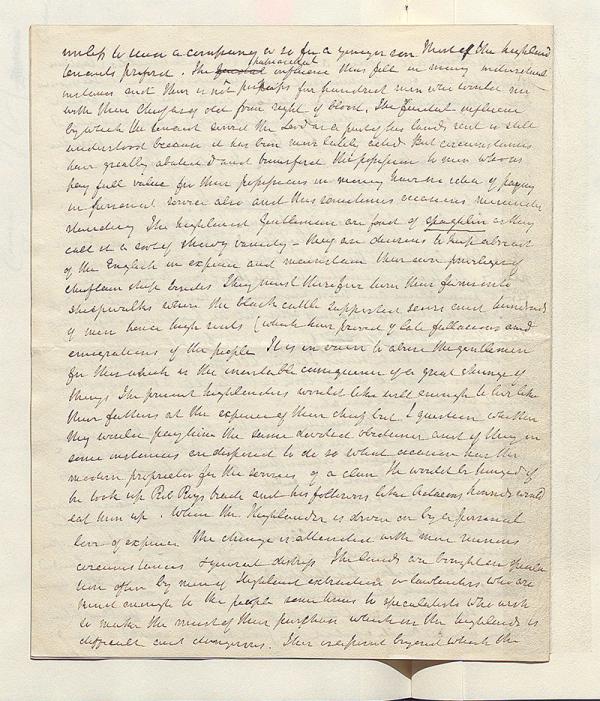 unless to raise a company or so for a younger son Most of the highland
tenants profess. The feudal patriarchal influence thus felt in many individual
instances and there is not perhaps five hundred men who would rise
with their Chief as of old from right of blood. The Feudal influence
by which the tenant served the Lord as a part of his lands rent is still
understood because it has been more lately acted But circumstances
have greatly abated and transferred the possession to men who as
they full value for their possessions in money have no idea of paying
in personal service also and this sometimes occasions
The highland Gentlemen are fond of as they
call it a sort of showy vanity – they are desirous to keep abreast
of the English in expence and maintain their own privileges of
chieftainship besides They must therefore turn their farms into
sheepwalks where the black cattle supported scores and hundreds
of men hence high rents (which have proved of late fallacious and
emigrations of the people It is in vain to abuse the gentlemen
for this which is the inevitable consequence of a great change of
things The present highlanders would like well enough to live like
their fathers at the expence of their chief but I question whether
they would pay him the same devoted obedience and if they in
some instances are disposed to do so what occasion has the
modern proprietor for the services of a clan He would be hanged if
he took up Rob Roys trade and his followers like Actaeons hounds would
eat him up. When the Highlander is driven on by a personal
love of expence the change is attended with more
circumstances & general distress The lands are bought on
often by men of Highland extraction or lowlanders who are
kind enough to the people sometimes to speculatists who wish
to make the most of their purchase which in the highlands is
difficult and dangerous. There is a point beyond which the